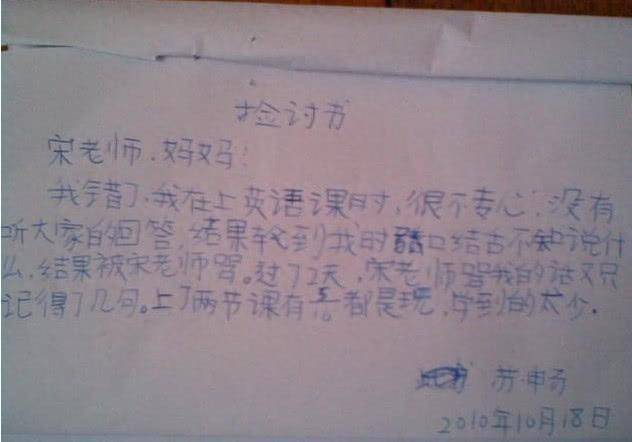 捡讨书
宋老师、妈妈:
我错了、我在上英语课时,很不专心,没有
听大家的回答,结果轮到我时口结舌不知说什
么,结果被宋老师骂。过了2天,宋老师骂我的话又只
记得了几句。上了两节课有都是玩,学到的太少.
苏畅
2010年10月18日